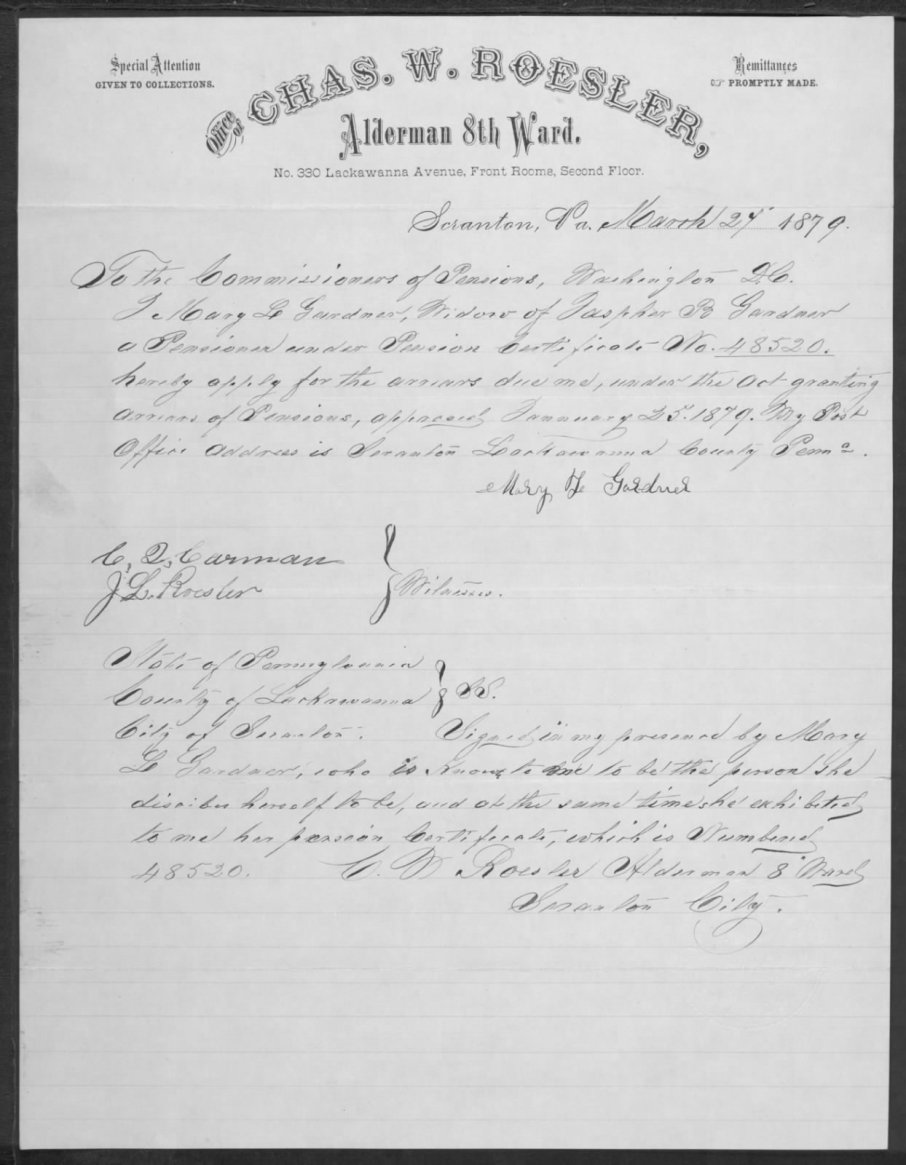 Special Attention
GIVEN TO COLLECTIONS.
Remittances
PROMPTLY MADE.
Office of CHAS. W. ROESLER,
Alderman 8th Ward.
No. 330 Lackawanna Avenue, Front Rooms, Second Floor.
Scranton, Pa. March 27" 1879.
To the Commissioners of Pensions, Washington D.C.
I Mary L Gardner, Widow of Jaspher R Gardner
a Pensioner under Pension Certificate No. 48520.
hereby apply for the arrears due me, under the act granting
arrears of Pensions, approved January 25. 1879. My Post
Office address is Scranton Lackawanna County Penna.
Mary Gardner
C. Carman
J L. Roesler } Witnesses.
State of Pennsylvania
County of Lackawanna } SS.
City of Scranton. Signed in my presence by Mary
L Gardner, who is Known to me to be the person She
discribes herself to be, and at the same time she exhibited
to me her pension Certificate, which is Numbered
48520. C. W Roesler Alderman 8" Ward
Scranton City.